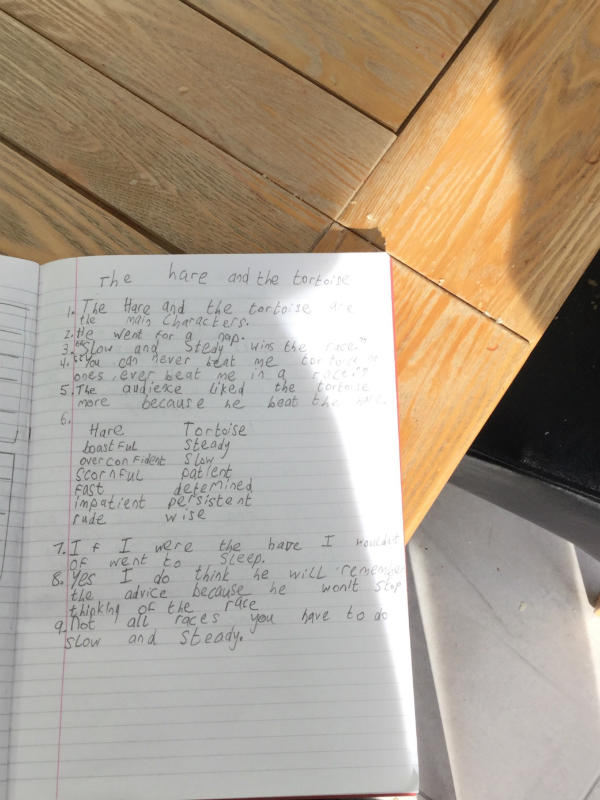 The hare and the tortoise
1. The Hare and the tortoise are
the main characters.
2. He went for a nap.
3. "Slow and Stedy wins the race."
4. "You can never beat me tortoise no
ones ever beat me in a race!"
5. The audience liked the tortoise
more because he beat the hare.
6.
Hare Tortoise
boastful Steady
overconfident Slow
Scornful patient
fast detemined
impatient persistent
rude wise
7. If I were the hare I wouldn't
of went to sleep.
8. Yes I do think he will remember
the advice because he won't stop
thinking of the race
9. Not all races you have to do
slow and steady.